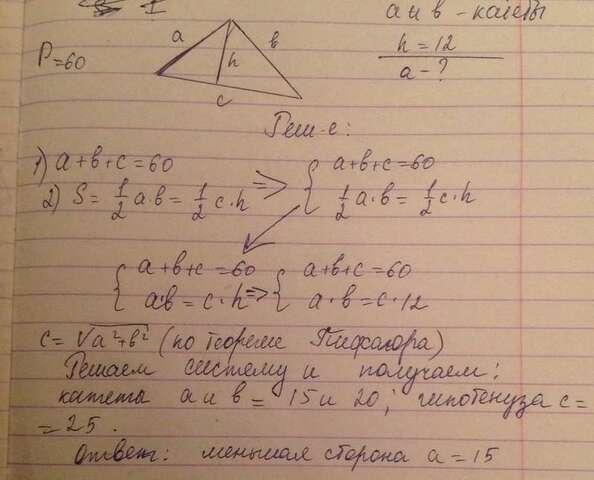 1
a и в - катеты
P=60
a
в
h
c
h=12
a-?
Реш-е:
1) a+в+c=60
=> { a+в+c=60
2) S= 1/2 a·в = 1/2 c·h
1/2 a·в = 1/2 c·h
{ a+в+c=60
a·в = c·h
=> { a+в+c=60
a·в=c·12
c= √a²+в² (по теореме Пифагора)
Решаем систему и получаем:
катеты a и в = 15 и 20; гипотенуза c=
= 25.
Ответ: меньшая сторона a=15